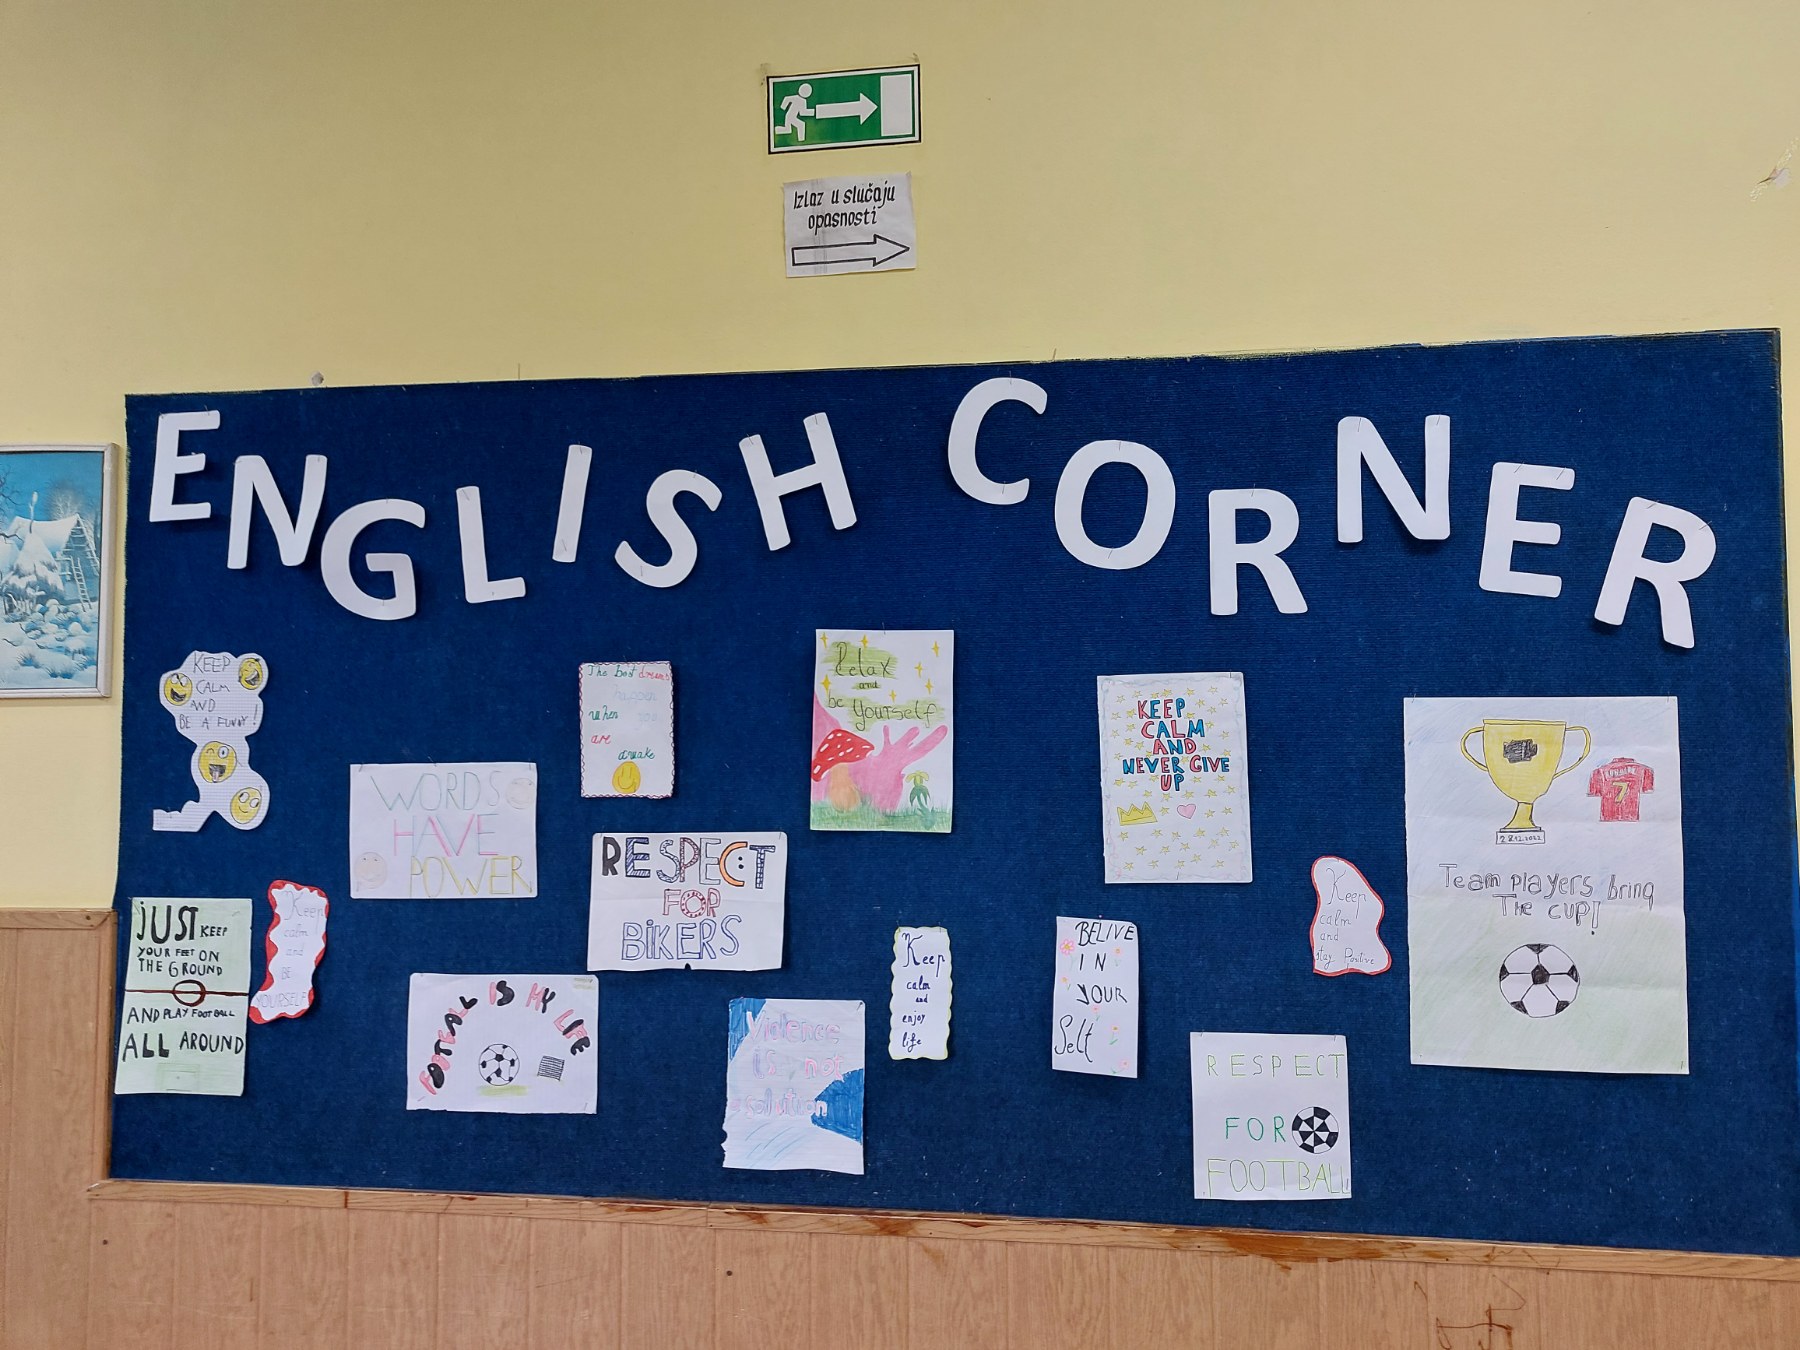 Izlaz u slučaju
opasnosti
ENGLISH CORNER
KEEP
CALM
AND
BE A FUNNY!
WORDS
HAVE
POWER
The best dreams
happen
when you
are
awake
Relax
and
be Yourself
KEEP
CALM
AND
NEVER GIVE
UP
28.12.2022
7
Team players bring
The cup!
JUST KEEP
YOUR FEET ON
THE GROUND
AND PLAY FOOTBALL
ALL AROUND
Keep
calm
and
BE
YOURSELF
RESPECT
FOR
BIKERS
FOOTBAL IS MY LIFE
Violence
is not
a solution
Keep
calm
and
enjoy
life
BELIVE
IN
YOUR
Self
Keep
calm
and
stay Positive
RESPECT
FOR
FOOTBALL